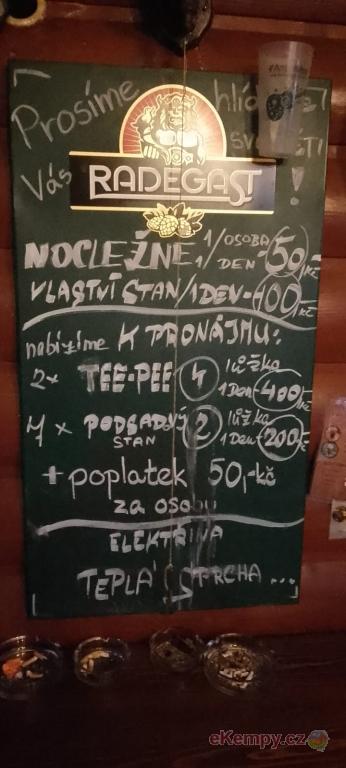 Prosíme
Vás
RADEGAST
!
NOCLEŽNÉ 1/OSOBA 1/DEN 50 Kč
VLASTNÍ STAN/1DEN-100 Kč
nabízíme K PRONÁJMU:
2x TEE-PEE 4 lůžka 1Den-400 Kč
7x PODSADOVÝ STAN 2 lůžka 1Den-200 Kč
+ poplatek 50,-Kč
za osobu
ELEKTŘINA
TEPLÁ SPRCHA...
eKempy.cz